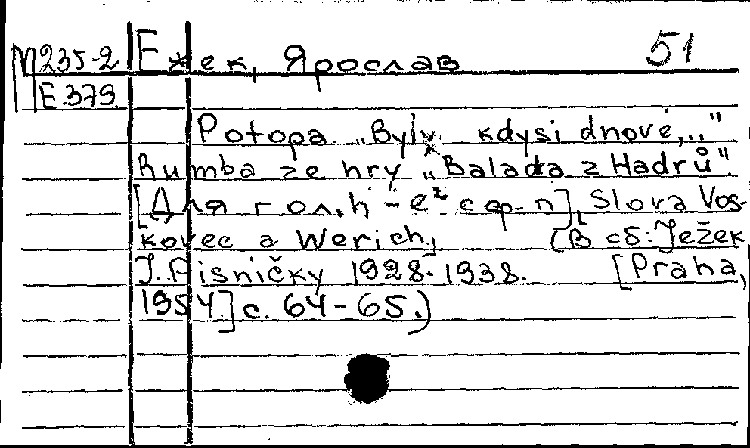 М235-2 Ежек, Ярослав 51
Е 379
Potopa „Byly kdysi dnové,.."
Rumba ze hry „Balada z Hadrů"
[Для гол. h - e² с ф-п], Slova Vos-
kovec a Werich, (В сб: Ježek
J. Pisničky 1928-1938. [Praha,
1954] с. 64-65.)